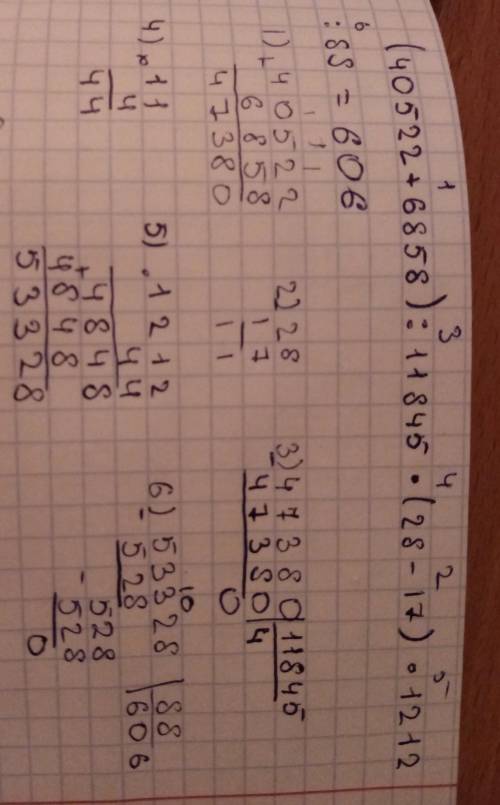 1 3 4 2 5
(40522+6858):11845·(28-17)·1212
6
:88=606
1) + 40522
6858
47380
2) 28
17
11
3) - 47380 | 11845
47380 | 4
0
4) × 11
4
44
5) · 1212
44
+ 4848
4848
53328
6) - 53328 | 88
528 | 606
10
- 528
528
0